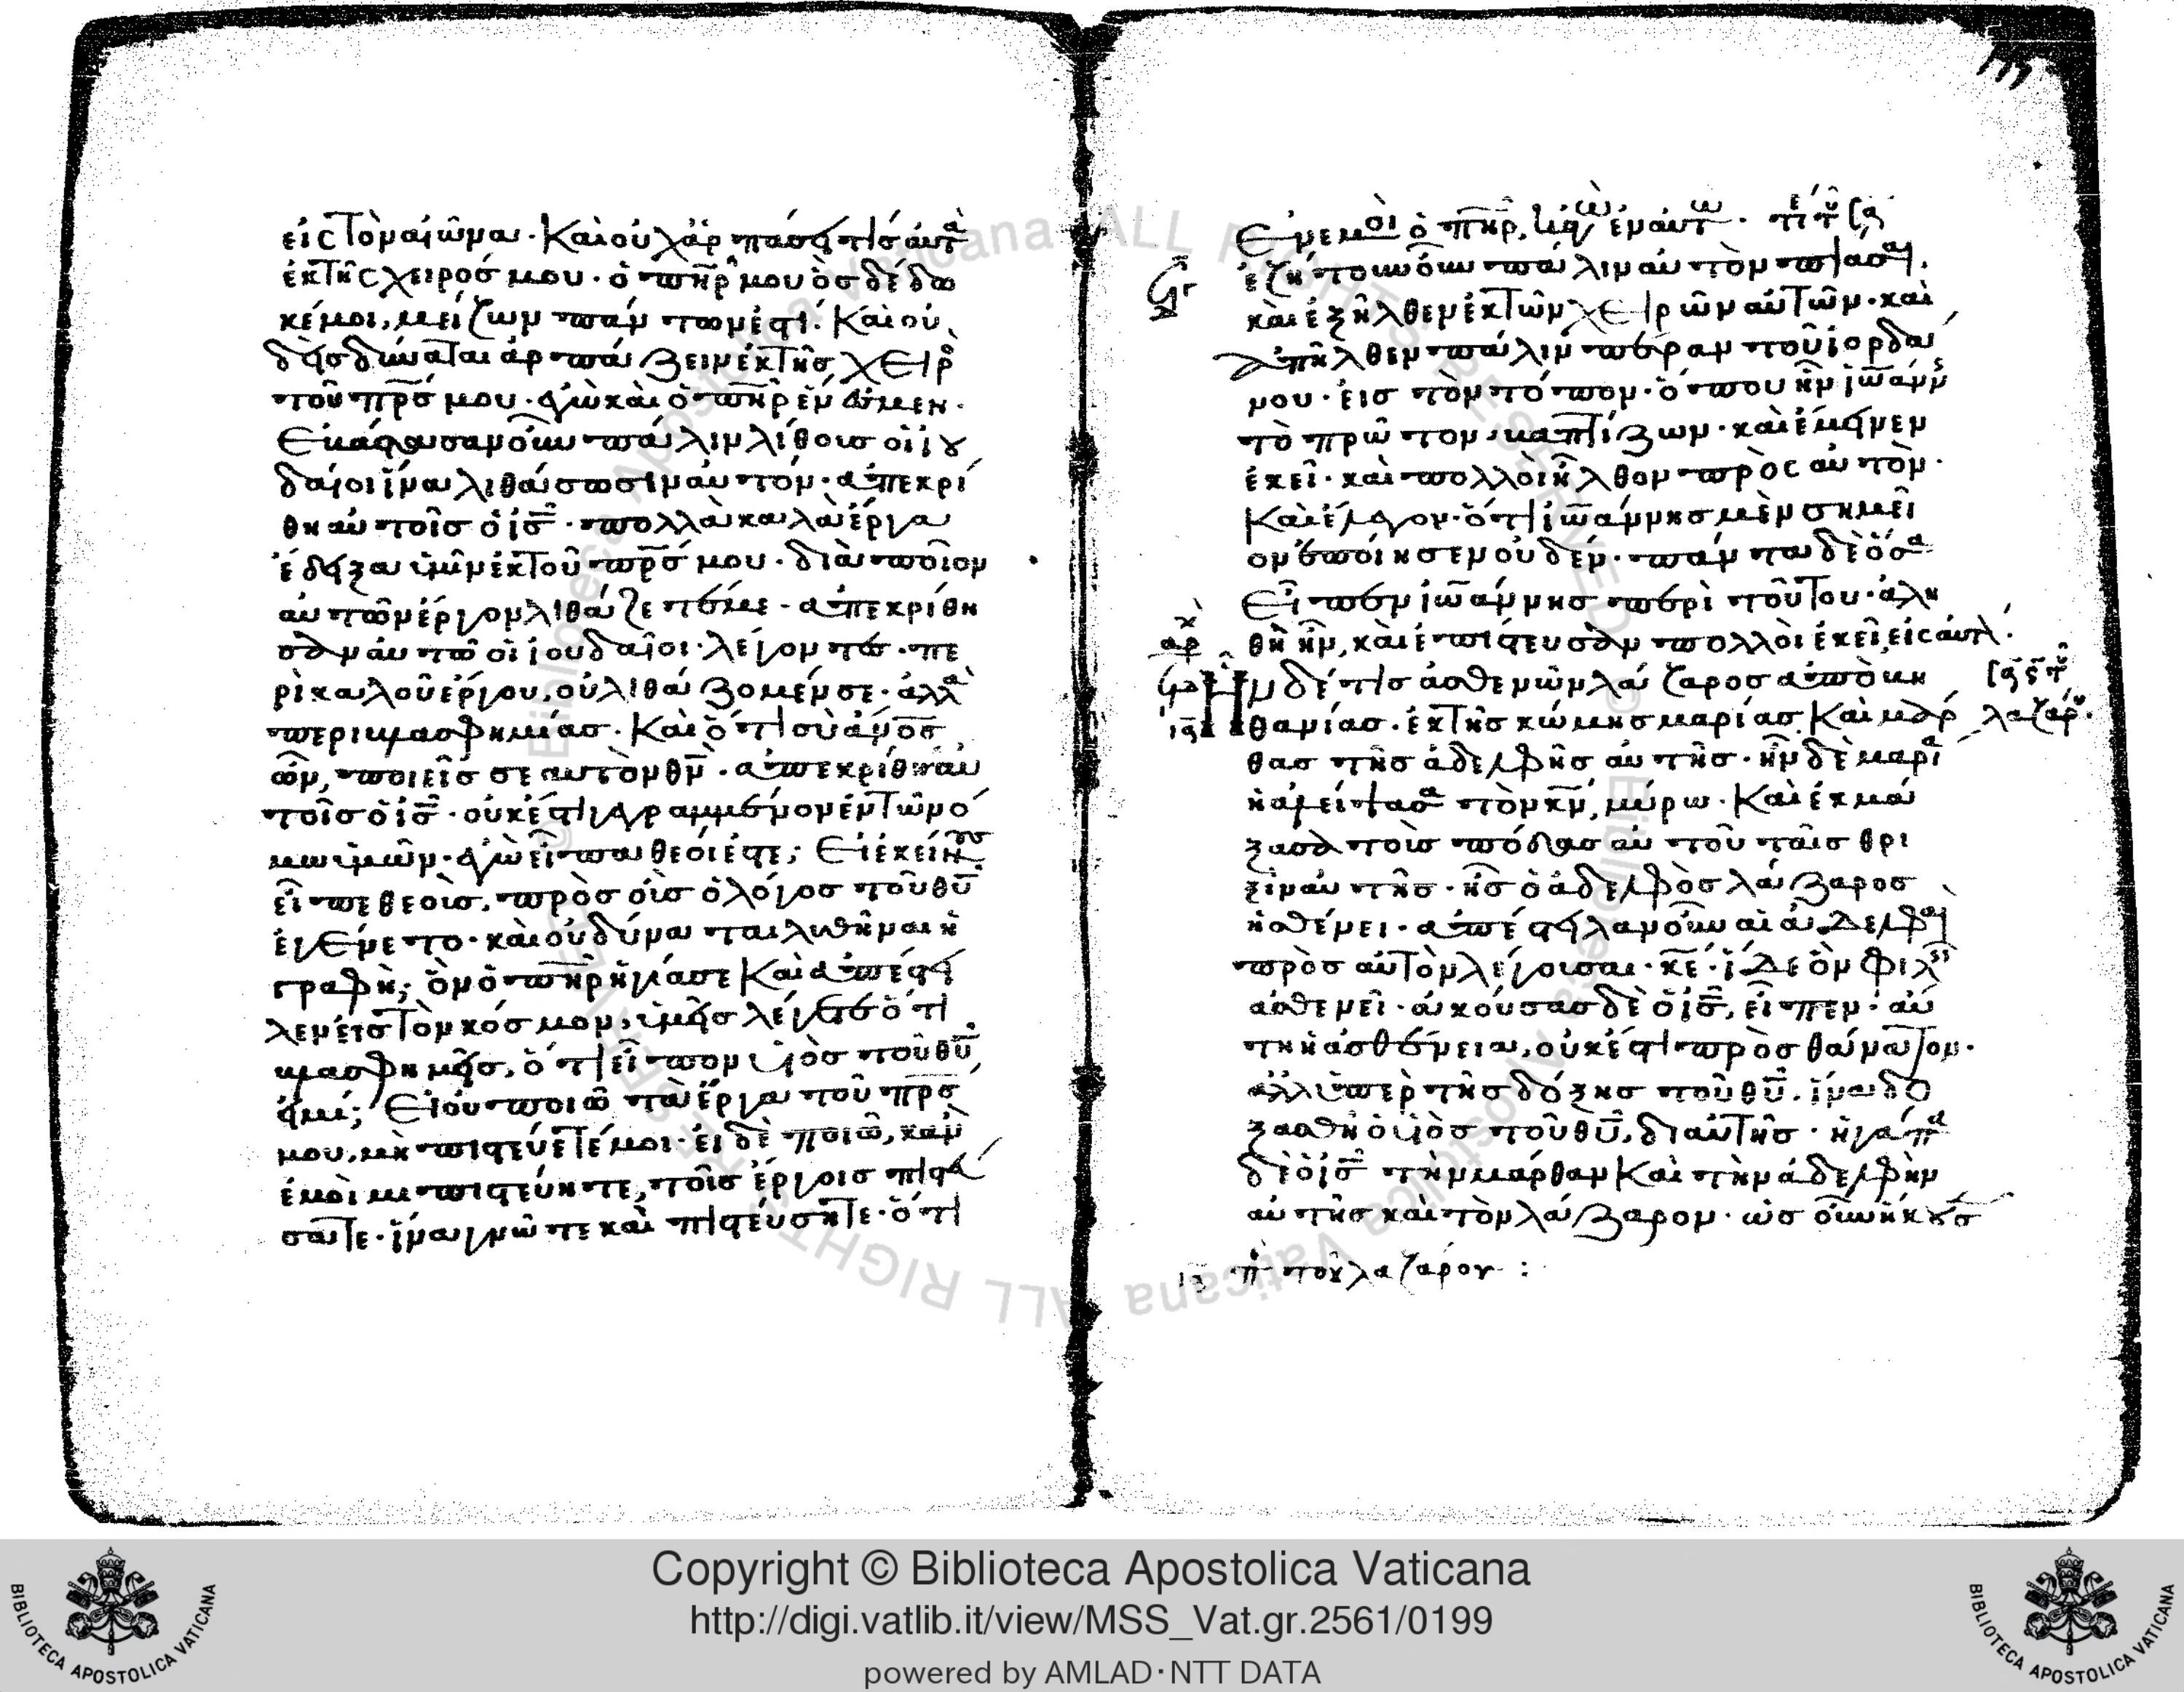 εἰς τὸν αἰῶνα· Καὶ οὐχ ἁρπάσει τὶς αὐτὰ
ἐκ τῆς χειρός μου· ὁ πη̅ρ μου ὃς δέδω
κέ μοι, μείζων πάντων ἐστί. Καὶ οὐ
δεὶς δύναται ἁρπάζειν ἐκ τῆς χειρο
τοῦ πρ̅ς μου· ἐγὼ καὶ ὁ πη̅ρ ἕν ἐσμεν·
Ἐβάστασαν οὖν πάλιν λίθους οἱ ἰου
δαίοι ἵνα λιθάσωσιν αὐτόν· ἀπεκρί
θη αὐτοῖς ὁ ι̅ς̅· πολλὰ καλὰ ἔργα
ἔδειξα ὑμῖν ἐκ τοῦ πρ̅ς μου· διὰ ποῖον
αὐτῶν ἔργον λιθάζετέ με· ἀπεκρίθη
σαν αὐτῶ οἱ ἰουδαῖοι· λέγοντες· πε
ρὶ καλοῦ ἔργου, οὐ λιθάζομέν σε· ἀλλὰ
περι βλασφημίας· Καὶ ὅτι σὺ α̅νο̅ς
ὢν, ποιεῖς σεαυτὸν θν̅· ἀπεκρίθη αὐ
τοῖς ὁ ι̅ς̅· οὐκ ἔστι γεγραμμένον ἐν τῶ νό
μω ὑμῶν· ἐγὼ εἶπα θεοί ἐστε; Εἰ ἐκείνους
εἶπε θεοὺς, πρὸς οὓς ὁ λόγος τοῦ θυ̅
ἐγένετο· καὶ οὐ δύναται λυθῆναι ἡ
γραφὴ; ὃν ὁ πη̅ρ ἡγίασε Καὶ ἀπέστει
λεν εἰς τὸν κόσμον, ὑμεῖς λέγετε ὅτι
βλασφημεῖς, ὅτι εἶπον υἱὸς τοῦ θυ̅
εἰμί; Εἰ οὐ ποιῶ τὰ ἔργα τοῦ πρ̅ς
μου, μὴ πιστεύετέ μοι· εἰ δὲ ποιῶ, κἂν
ἐμοὶ μὴ πιστεύητε, τοῖς ἔργοις πιστεύ
σατε· ἵνα γνῶτε καὶ πιστεύσητε· ὅτι
Ἐν ἐμοὶ ὁ πη̅ρ, κἀγὼ ἐν αὐτῶ·
ἐζήτουν οὖν πάλιν αὐτὸν πιάσαι.
καὶ ἐξῆλθεν ἐκ τῶν χειρῶν αὐτῶν· καὶ
ἀπῆλθεν πάλιν πέραν τοῦ ἰορδά
νου· εἰς τὸν τόπον· ὅπου ἦν ἰω̅άννης
τὸ πρῶτον, βαπτίζων· καὶ ἔμεινεν
ἐκεῖ· καὶ πολλοὶ ἦλθον πρὸς αὐτὸν·
Καὶ ἔλεγον· ὅτι ἰω̅άννης μὲν σημεῖ
ον ἐποίησεν οὐδέν· πάντα δὲ ὅσα
Εἶπεν ἰω̅άννης περὶ τούτου· ἀλη
θῆ ἦν, καὶ ἐπίστευσαν πολλοὶ ἐκεῖ, εἰς αὐτόν.
Ἦν δέ τις ἀσθενῶν λάζαρος ἀπὸ βη
θανίας· ἐκ τῆς κώμης μαρίας Καὶ μάρ
λαζάρου·
θας τῆς ἀδελφῆς αὐτῆς· ἦν δὲ μαρία
ἡ ἀλείψασα τὸν κν̅, μύρω· Καὶ ἐκμά
ξασα τοὺς πόδας αὐτοῦ ταῖς θρι
ξὶν αὐτῆς· ἧς ὁ ἀδελφὸς λάζαρος
ἠσθένει· ἀπέστειλαν οὖν αἱ ἀδελφαὶ
πρὸς αὐτὸν λέγουσαι· κε̅· ἴδε ὃν φιλεῖς
ἀσθενεῖ· ἀκούσας δὲ ὁ ι̅ς̅, εἶπεν· αὕ
τη ἡ ἀσθένεια, οὐκ ἔστι πρὸς θάνατον·
ἀλλ' ὑπὲρ τῆς δόξης τοῦ θυ̅. ἵνα δο
ξασθῆ ὁ υἱὸς τοῦ θυ̅, δι αὐτῆς· ἠγάπα
δὲ ὁ ι̅ς̅ τὴν μάρθαν Καὶ τὴν ἀδελφὴν
αὐτῆς καὶ τὸν λάζαρον· ὡς οὖν ἤκουσ
τοῦ λαζάρου :
Copyright © Biblioteca Apostolica Vaticana
http://digi.vatlib.it/view/MSS_Vat.gr.2561/0199
powered by AMLAD·NTT DATA
BIBLIOTECA APOSTOLICA VATICANA
BIBLIOTECA APOSTOLICA VATICANA